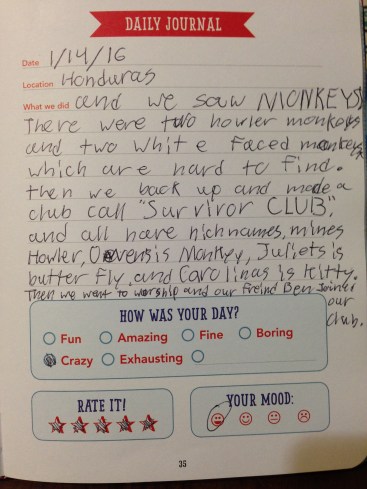 DAILY JOURNAL
Date 1/14/16
Location Honduras
What we did and we saw MONKEYS
There were two howler monkeys
and two white faced monkeys
which are hard to find.
then we back up and made a
club call "Survivor CLUB",
and all have nichnames, mines
Howler, Owensis Monkey, Juliets is
butter fly, and Carolinas is kitty.
Then we went to worship and our freind Ben Joined
our
club.
HOW WAS YOUR DAY?
Fun Amazing Fine Boring
Crazy Exhausting
RATE IT! YOUR MOOD:
35